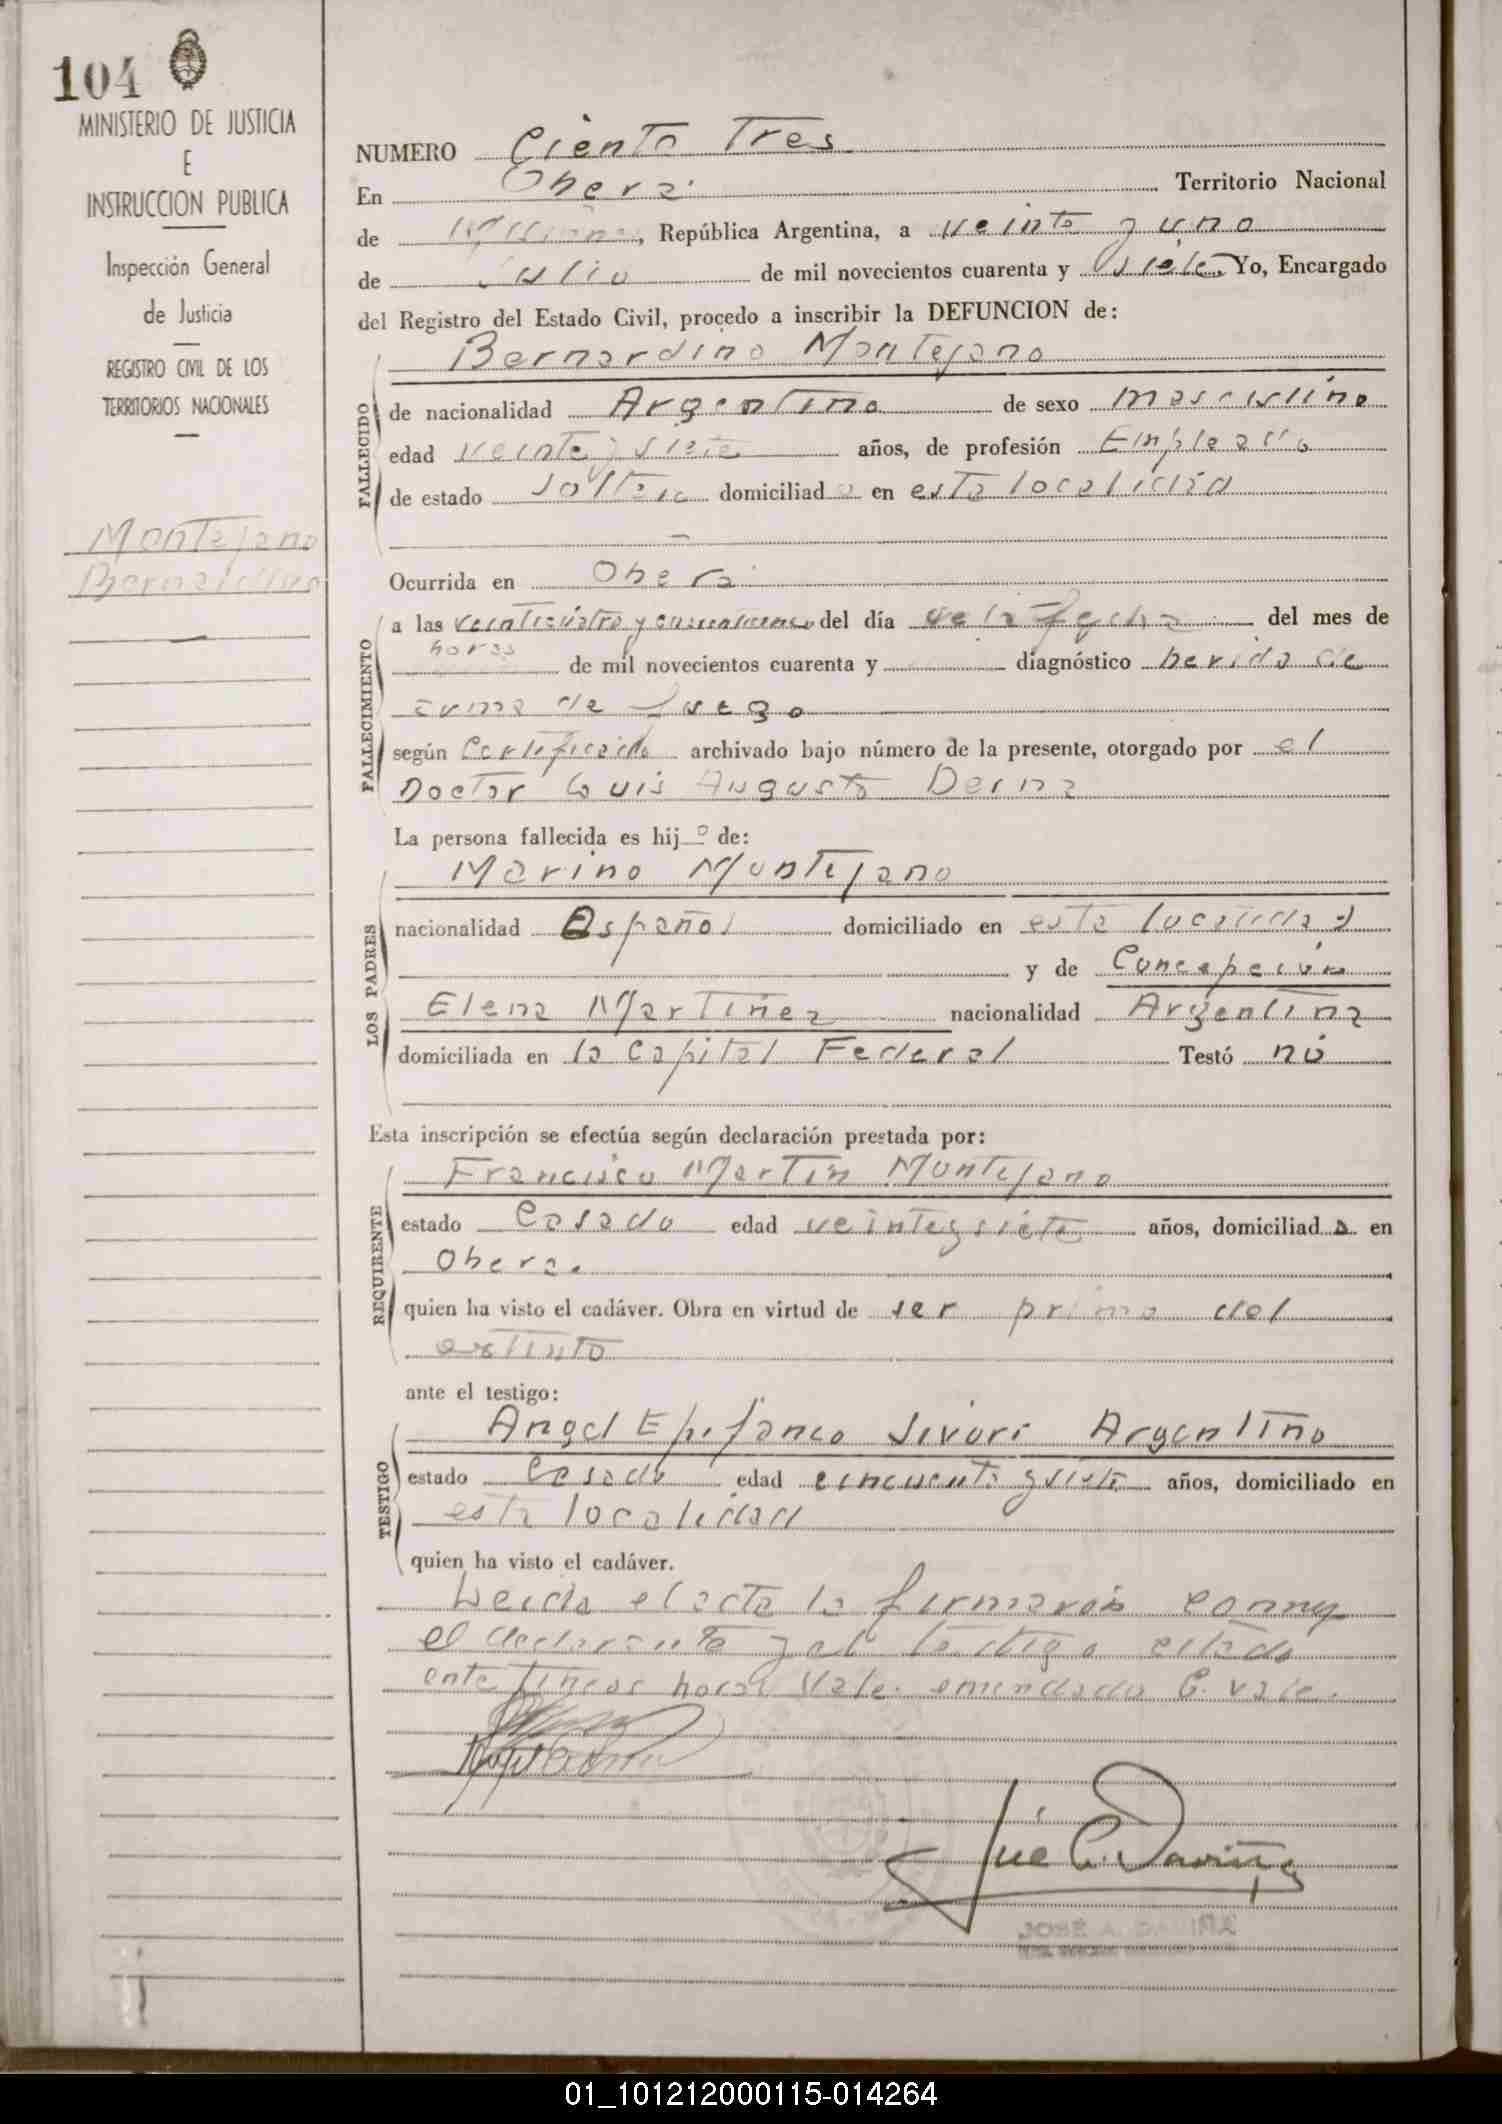 104
MINISTERIO DE JUSTICIA
E
INSTRUCCION PUBLICA
Inspección General
de Justicia
REGISTRO CIVIL DE LOS
TERRITORIOS NACIONALES
Montejano
Bernardino
NUMERO Ciento Tres
En Oberá Territorio Nacional
de Misiones, República Argentina, a veinte y uno
de Julio de mil novecientos cuarenta y siete, Yo, Encargado
del Registro del Estado Civil, procedo a inscribir la DEFUNCION de:
Bernardino Montejano
FALLECIDO
de nacionalidad Argentino de sexo masculino
edad veinte y siete años, de profesión Empleado
de estado soltero domiciliado en esta localidad
Ocurrida en Obera
FALLECIMIENTO
a las y del día de la fecha del mes de
horas de mil novecientos cuarenta y diagnóstico herida de
arma de fuego
según Certificado archivado bajo número de la presente, otorgado por el
Doctor Luis Augusto Derna
La persona fallecida es hijo de:
LOS PADRES
Marino Montejano
nacionalidad Español domiciliado en esta localidad
y de Concepción
Elena Martinez nacionalidad Argentina
domiciliada en la Capital Federal Testó nó
Esta inscripción se efectúa según declaración prestada por:
REQUIRENTE
Francisco Martin Montejano
estado Casado edad veinte y siete años, domiciliado en
Obera.
quien ha visto el cadáver. Obra en virtud de ser primo del
extinto
ante el testigo:
TESTIGO
Angel Epifaneo Sivori Argentino
estado Casado edad cincuenta y siete años, domiciliado en
esta localidad
quien ha visto el cadáver.
Leida el acta la firmarón conmy
el declarante y el testigo citado
entre lineas horas Vale. emendado E. vale.